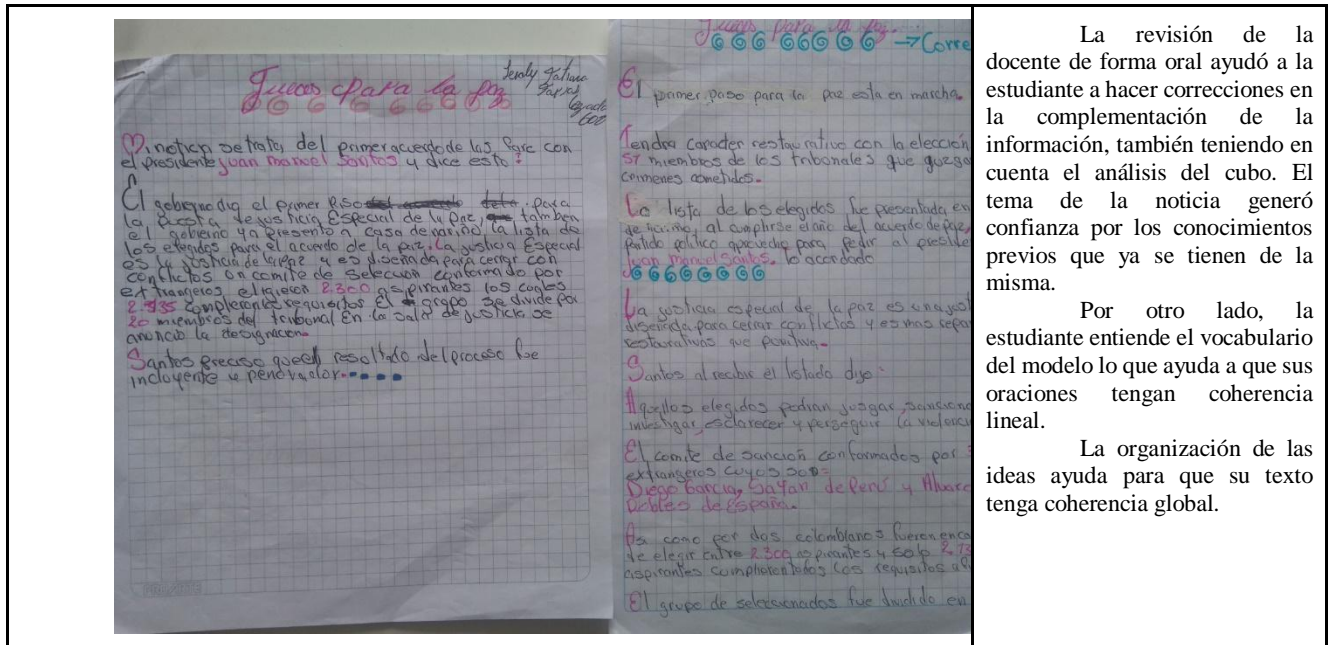 Jueces para la paz
Tatiana
600
Mi noticia se trata del primer acuerdo de las farc con
el presidente juan manuel Santos y dice esto:
El gobierno dio el primer paso para
la justicia Especial de la Paz, tambien
el gobierno ya presento a casa de nariño, la lista de
los elegidos para el acuerdo de la paz. La justicia Especial
es la justicia de la paz y es diseñada para cerrar con
conflictos un comite de selección conformado por
extrangeros eligieron 2.300 aspirantes los cuales
2.935 complieron los requisitos El grupo se divide por
20 miembros del tribunal En la sala de justicia se
anuncio la designacion.
Santos preciso que el resultado del proceso fue
incluyente y
Jueces para la paz. → Corre
El primer paso para la paz esta en marcha.
Tendra caracter restaurativo con la elección
51 miembros de los tribonales que
crimenes cometidos.
La lista de los elegidos fue presentada en
de nariño, al cumplirse el año del acuerdo de paz,
Partido politico aprovecho para pedir al preside
juan manuel Santos. lo acordado
La justicia especial de la paz es una just
diseñada para cerrar conflictos y es mas repar
restaurativas que
Santos al recibir el listado dijo:
Aquellos elegidos podran jusgar, sanciona
investigar, esclarecer y perseguir la
El comite de sanción conformados por
extrangeros cuyos son:
Diego Garcia, Sayan de Perú y Alvaro
Robles de España.
As como por dos colombianos fueron enca
de elegir entre 2.300 aspirantes y solo
aspirantes complieron todos los requisitos
El grupo de seleccionados fue dividido en
La revisión de la
docente de forma oral ayudó a la
estudiante a hacer correcciones en
la complementación de la
información, también teniendo en
cuenta el análisis del cubo. El
tema de la noticia generó
confianza por los conocimientos
previos que ya se tienen de la
misma.
Por otro lado, la
estudiante entiende el vocabulario
del modelo lo que ayuda a que sus
oraciones tengan coherencia
lineal.
La organización de las
ideas ayuda para que su texto
tenga coherencia global.